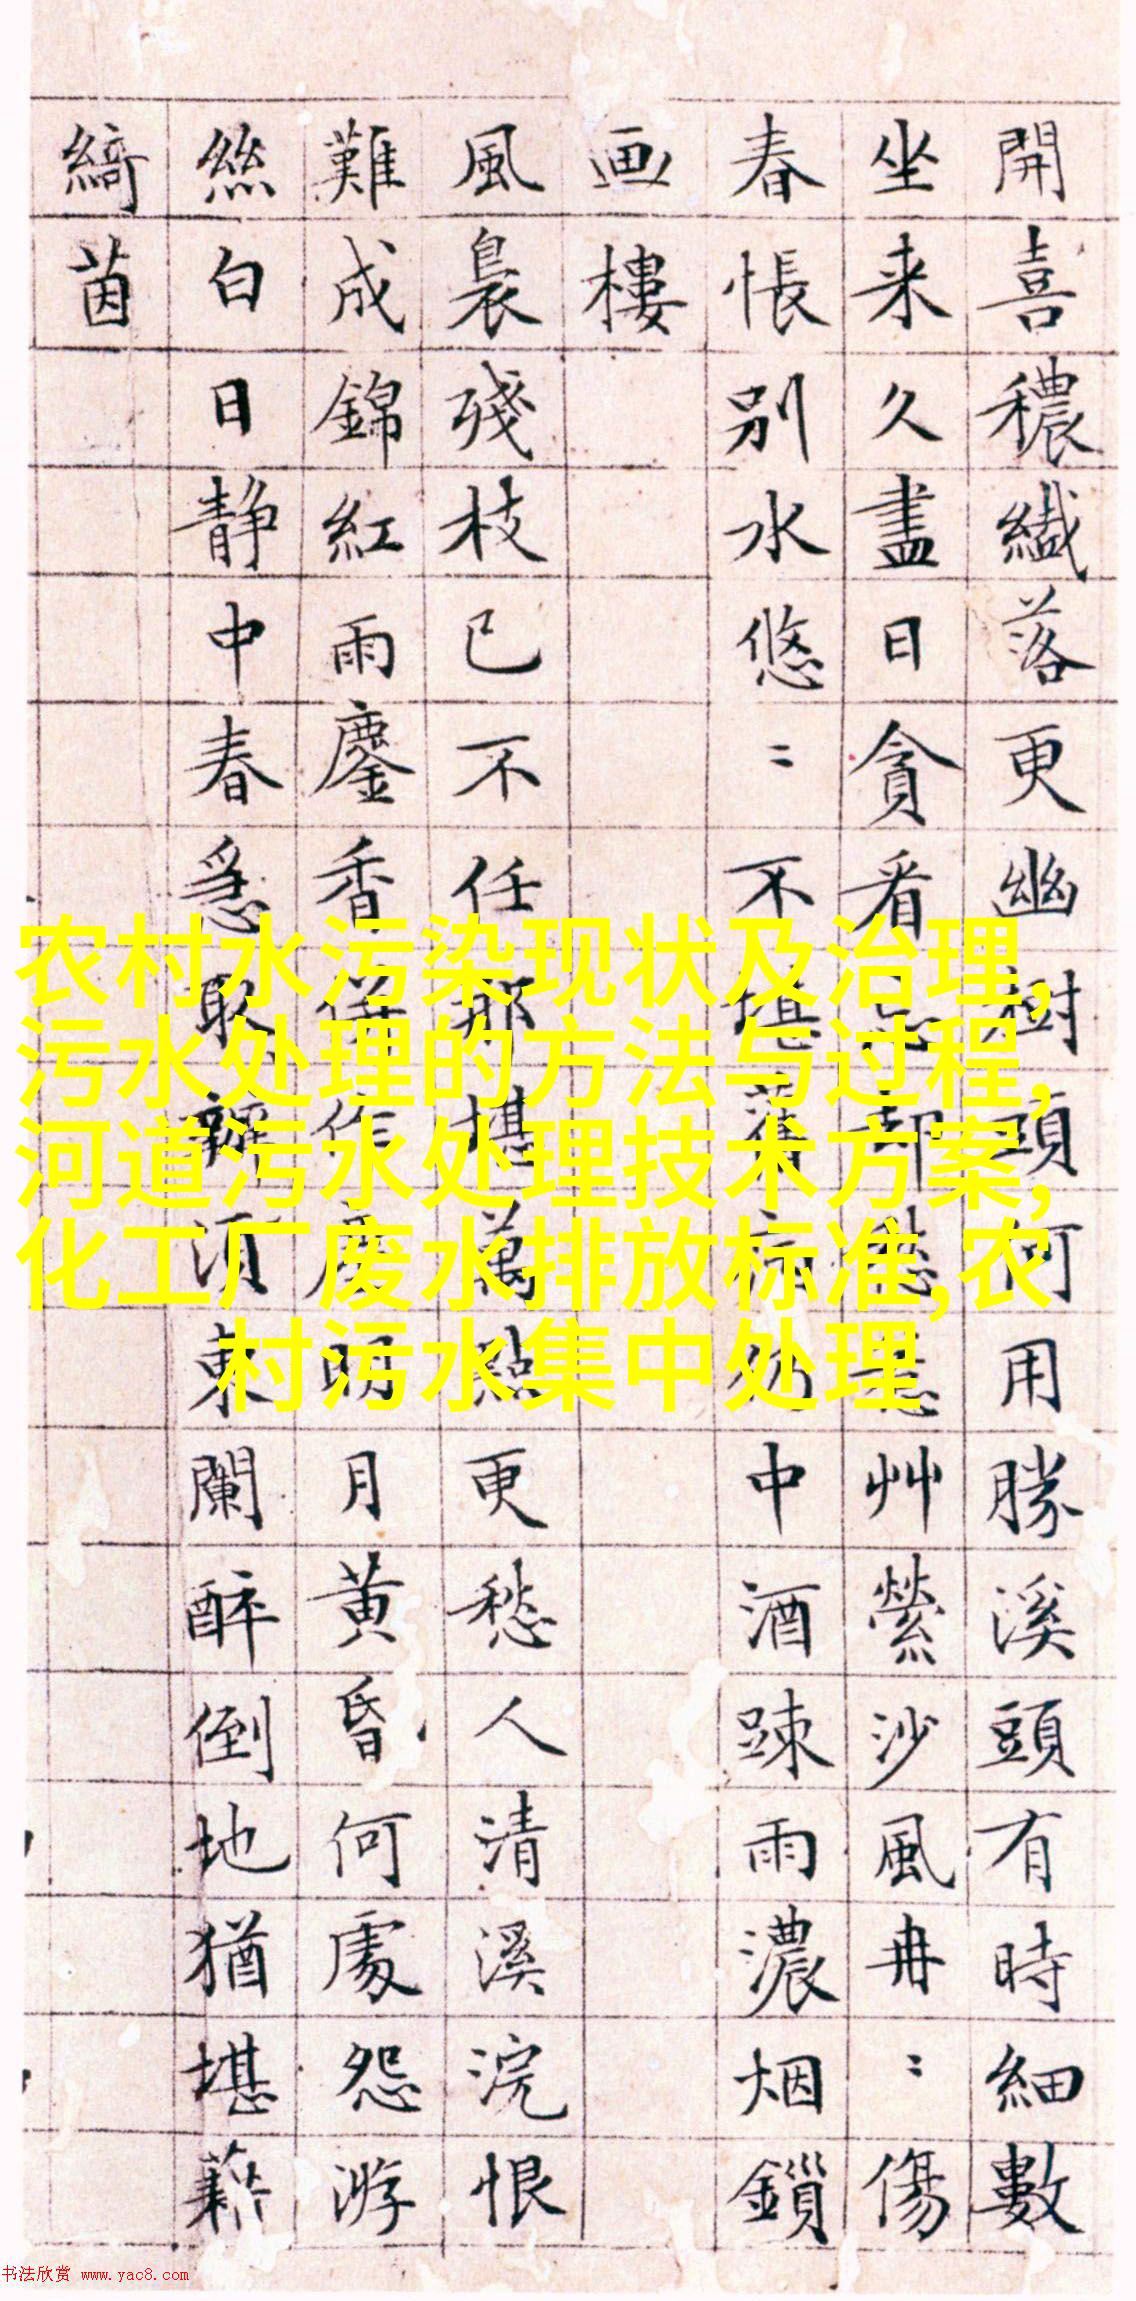 開喜穠纎落更幽樹頭何用勝溪頭有時細數
坐来久盡日貪看忘却愁艸縈沙風冉〻傷
春悵别水悠〻不堪舊病仍中酒踈雨濃烟鎖
画樓
風裊殘枝已不任那堪萬點更愁人清溪浣恨
難成錦紅雨鏖香併作塵明月黄昏何處怨游
絲白日静中春急取須東闌醉倒地猶堪藉
綺茵
农村水污染现状及治理,
污水处理的方法与过程,
河道污水处理技术方案,
化工厂废水排放标准,农
村污水集中处理
书法欣赏 www.yac8.com